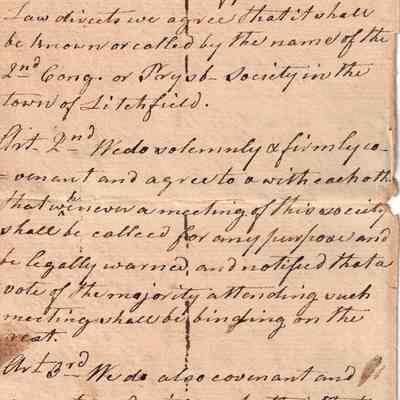 Law directs we agree that it shall
be known or called by the name of the
2nd Cong. or Prysb- Society in the
town of Litchfield.
Art. 2nd We do solemnly & firmly co-
=venant and agree to & with each oth
that whenever a meeting of this society
shall be calleed for any purpose and
be legally warned, and notified that a
vote of the majority attending such
meeting shall be binding on the
rest.
Art 3rd We do also covenant and